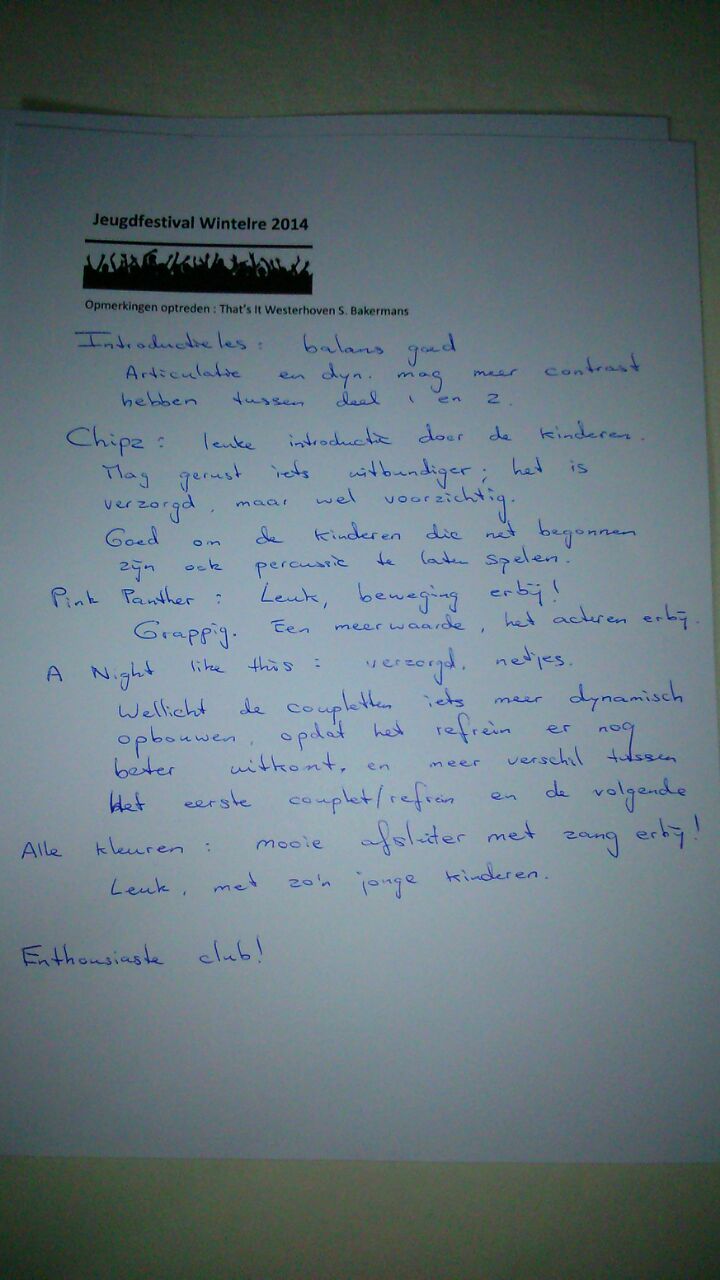 Jeugdfestival Wintelre 2014
Opmerkingen optreden : That's It Westerhoven S. Bakermans
Introductieles : balans goed
Articulatie en dyn. mag meer contrast
hebben tussen deel 1 en 2.
Chipz : leuke introductie door de kinderen.
Mag gerust iets uitbundiger; het is
verzorgd, maar wel voorzichtig.
Goed om de kinderen die net begonnen
zijn ook percussie te laten spelen.
Pink Panther : Leuk, beweging erbij!
Grappig. Een meerwaarde, het acteren erbij.
A Night like this : verzorgd, netjes.
Wellicht de coupletten iets meer dynamisch
opbouwen, opdat het refrein er nog
beter uitkomt, en meer verschil tussen
het eerste couplet/refrein en de volgende
Alle kleuren : mooie afsluiter met zang erbij!
Leuk, met zo'n jonge kinderen.
Enthousiaste club!